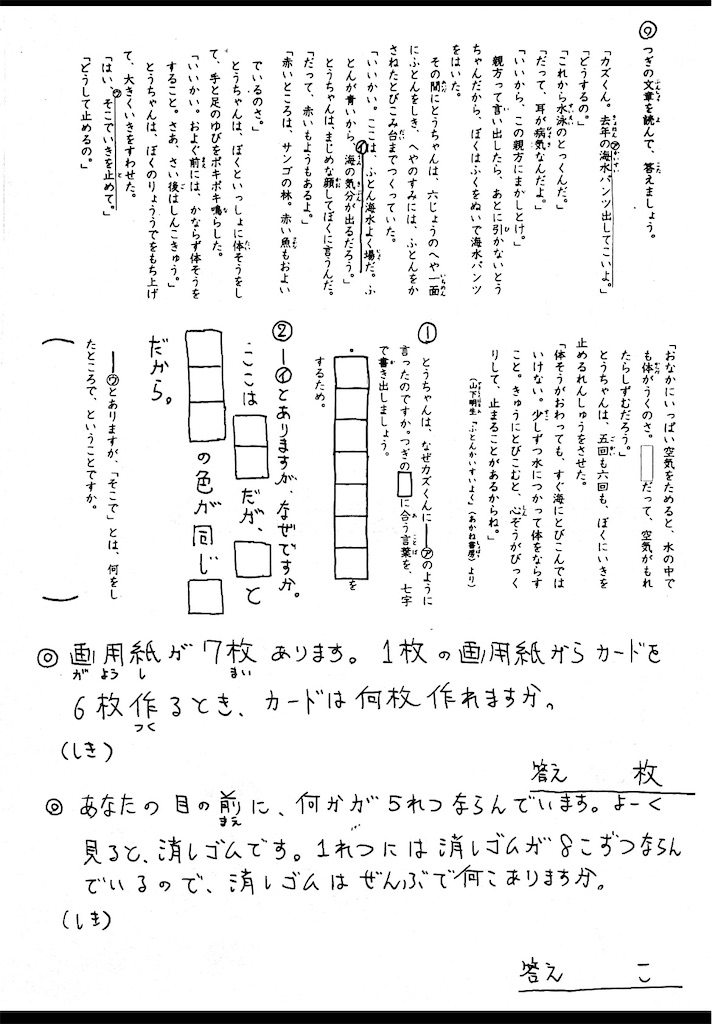 ◎ つぎの文章を読んで、答えましょう。
「カズくん。去年の㋐海水パンツ出してこいよ。」
「どうするの。」
「これから水泳のとっくんだ。」
「だって、耳が病気なんだよ。」
「いいから、この親方にまかしとけ。」
親方って言い出したら、あとに引かないとう
ちゃんだから、ぼくはふくをぬいで海水パンツ
をはいた。
その間にとうちゃんは、六じょうのへや一面
にふとんをしき、へやのすみには、ふとんをか
さねたとびこみ台までつくっていた。
「いいかい。ここは、ふとん海水よく場だ。ふ
とんが青いから、㋑海の気分が出るだろう。」
とうちゃんは、まじめな顔してぼくに言うんだ。
「だって、赤いもようもあるよ。」
「赤いところは、サンゴの林。赤い魚もおよい
でいるのさ。」
とうちゃんは、ぼくといっしょに体そうをし
て、手と足のゆびをポキポキ鳴らした。
「いいかい。およぐ前には、かならず体そうを
すること。さあ、さい後はしんこきゅう。」
とうちゃんは、ぼくのりょううでをもち上げ
て、大きくいきをすわせた。
「はい、㋒そこでいきを止めて。」
「どうして止めるの。」
「おなかにいっぱい空気をためると、水の中で
も体がうくのさ。□だって、空気がもれ
たらしずむだろう。」
とうちゃんは、五回も六回も、ぼくにいきを
止めるれんしゅうをさせた。
「体そうがおわっても、すぐ海にとびこんでは
いけない。少しずつ水につかって体をならす
こと。きゅうにとびこむと、心ぞうがびっく
りして、止まることがあるからね。」
(山下明生「ふとんかいすいよく」〈あかね書房〉より)
① とうちゃんは、なぜカズくんに――㋐のように
言ったのですか。つぎの□に合う言葉を、七字
で書き出しましょう。
・□□□□□□□を
するため。
② ――㋑とありますが、なぜですか。
ここは□□だが、□と
□□□の色が同じ□
だから。
――㋒とありますが、「そこで」とは、何をし
たところで、ということですか。
( )
◎ 画用紙が7枚あります。1枚の画用紙からカードを
6枚作るとき、カードは何枚作れますか。
(しき)
答え 枚
◎ あなたの目の前に、何かが5れつならんでいます。よーく
見ると、消しゴムです。1れつには消しゴムが8こずつならん
でいるので、消しゴムはぜんぶで何こありますか。
(しき)
答え こ